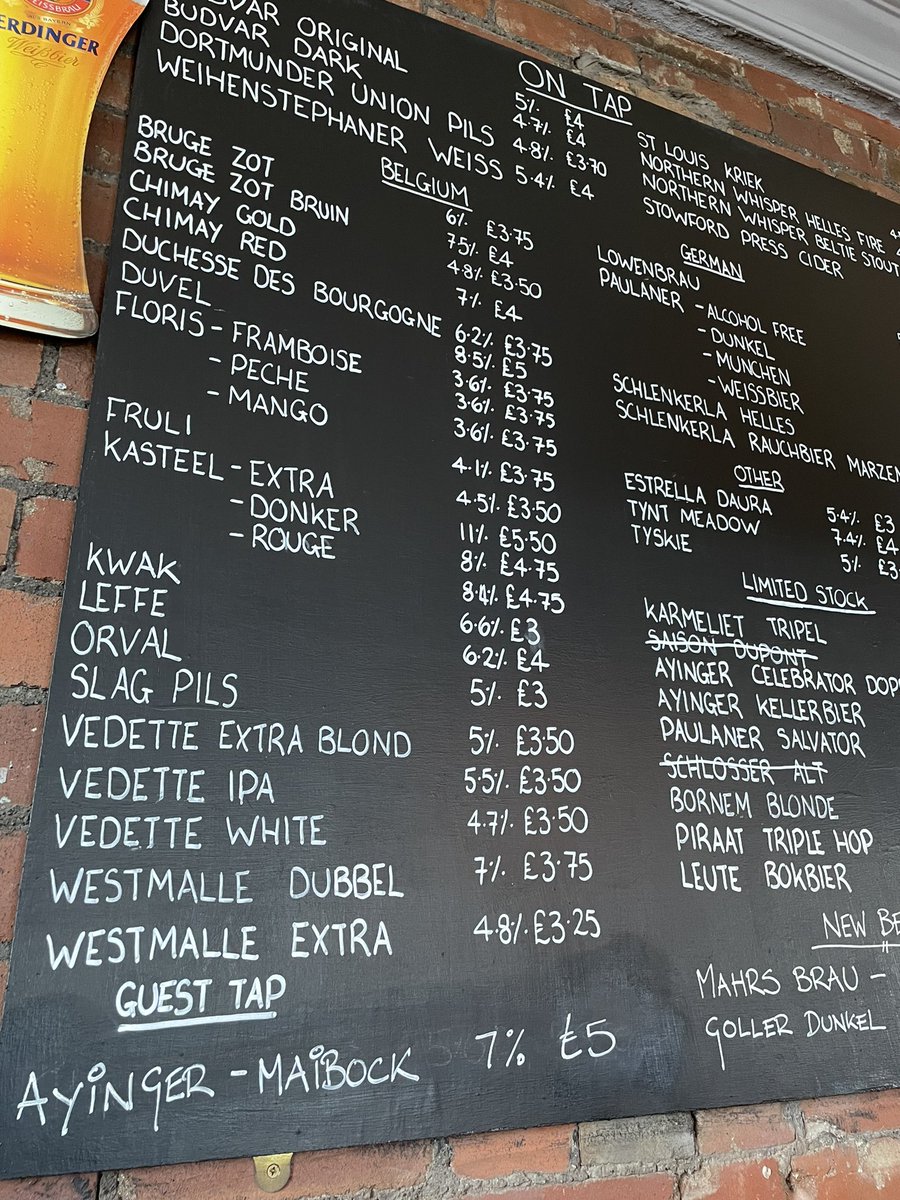 ERDINGER
Weißbier
ON TAP
BUDVAR ORIGINAL 5% £4
BUDVAR DARK 4.7% £4
DORTMUNDER UNION PILS 4.8% £3.70
WEIHENSTEPHANER WEISS 5.4% £4
BELGIUM
BRUGE ZOT 6% £3.75
BRUGE ZOT BRUIN 7.5% £4
CHIMAY GOLD 4.8% £3.50
CHIMAY RED 7% £4
DUCHESSE DES BOURGOGNE 6.2% £3.75
DUVEL 8.5% £5
FLORIS - FRAMBOISE 3.6% £3.75
- PECHE 3.6% £3.75
- MANGO 3.6% £3.75
FRULI 4.1% £3.75
KASTEEL - EXTRA 4.5% £3.50
- DONKER 11% £5.50
- ROUGE 8% £4.75
KWAK 8.4% £4.75
LEFFE 6.6% £3
ORVAL 6.2% £4
SLAG PILS 5% £3
VEDETTE EXTRA BLOND 5% £3.50
VEDETTE IPA 5.5% £3.50
VEDETTE WHITE 4.7% £3.50
WESTMALLE DUBBEL 7% £3.75
WESTMALLE EXTRA 4.8% £3.25
GUEST TAP
AYINGER - MAIBOCK 7% £5
ST LOUIS KRIEK
NORTHERN WHISPER HELLES FIRE
NORTHERN WHISPER BELTIE STOUT
STOWFORD PRESS CIDER
GERMAN
LOWENBRAU
PAULANER - ALCOHOL FREE
- DUNKEL
- MUNCHEN
- WEISSBIER
SCHLENKERLA HELLES
SCHLENKERLA RAUCHBIER MARZEN
OTHER
ESTRELLA DAURA 5.4% £3
TYNT MEADOW 7.4% £4
TYSKIE 5% £3.
LIMITED STOCK
KARMELIET TRIPEL
SAISON DUPONT
AYINGER CELEBRATOR DOP
AYINGER KELLERBIER
PAULANER SALVATOR
SCHLOSSER ALT
BORNEM BLONDE
PIRAAT TRIPLE HOP
LEUTE BOKBIER
NEW BE
MAHRS BRAU -
GOLLER DUNKEL